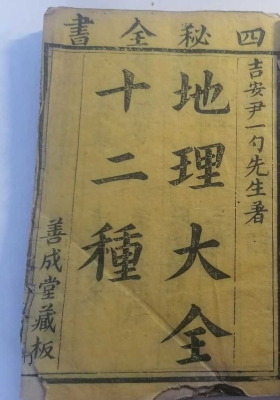 四秘全書
吉安尹一勺先生著
地理大全
十二種
善成堂藏板